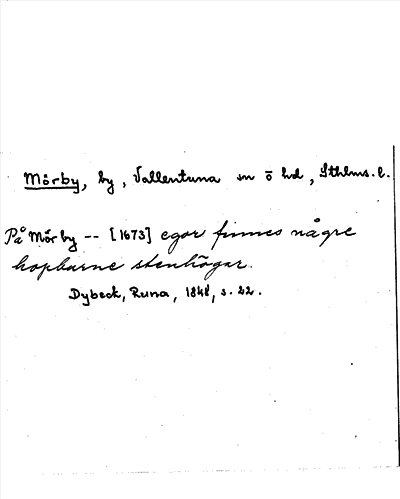 Mörby, by, Vallentuna sn o hd, Sthlms. l.
På Mörby -- [1673] egor finnes någre
hopburne stenhögar.
Dybeck, Runa, 1848, s. 22.